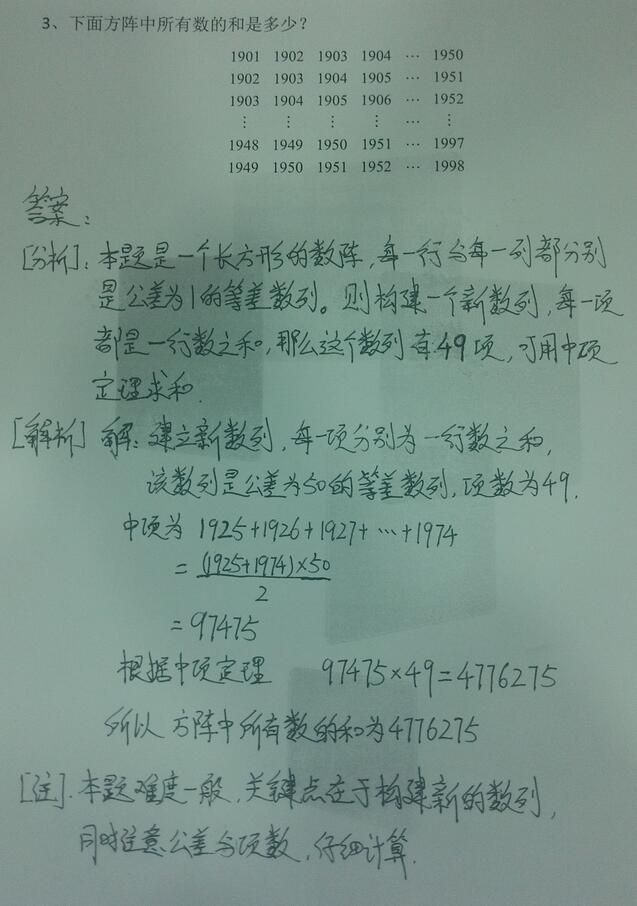 3、下面方阵中所有数的和是多少?
1901 1902 1903 1904 … 1950
1902 1903 1904 1905 … 1951
1903 1904 1905 1906 … 1952
⋮ ⋮ ⋮ ⋮ … ⋮
1948 1949 1950 1951 … 1997
1949 1950 1951 1952 … 1998
答案:
[分析]:本题是一个长方形的数阵,每一行与每一列都分别
是公差为1的等差数列。则构建一个新数列,每一项
都是一行数之和,那么这个数列有49项,可用中项
定理求和.
[解析] 解:建立新数列,每一项分别为一行数之和,
该数列是公差为50的等差数列,项数为49.
中项为 1925+1926+1927+…+1974
= (1925+1974)×50
2
= 97475
根据中项定理 97475×49=4776275
所以 方阵中所有数的和为4776275
[注].本题难度一般,关键点在于构建新的数列,
同时注意公差与项数,仔细计算.